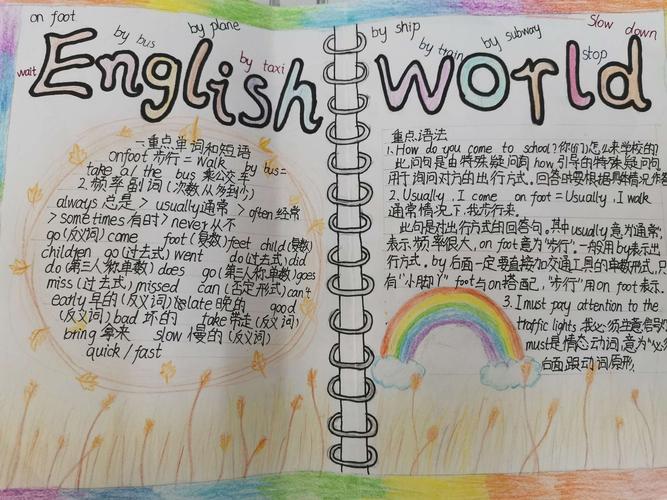 on foot
by bus
by plane
by taxi
wait
English
by ship
by train
by subway
Slow down
stop
World
一重点单词和短语
onfoot 步行 = walk
take a/the bus 乘公交车 by bus=
2.频率副词(次数从多到少)
always 总是 > usually通常 > often 经常
> sometimes 有时 > never从不
go(反义词) come foot(复数)feet child(复数)
children go(过去式)went do(过去式)did
do(第三人称单数)does go(第三人称单数)goes
miss(过去式)missed can(否定形式)can't
early早的(反义词)late晚的 good
(反义词)bad 坏的 take带走(反义词)
bring 拿来 slow 慢的(反义词)
quick/fast
重点语法
1.How do you come to school?你(们)怎么来学校的
此问句是由特殊疑问词how引导的特殊疑问句,
用于询问对方的出行方式。回答时要根据具体情况作答
2.Usually, I come on foot=Usually, I walk
通常情况下,我步行来。
此句是对出行方式的回答句。其中usually意为通常,
表示频率很大, on foot意为"步行",一般用by表示出
行方式。by后面一定要直接加交通工具的单数形式。只
有"小脚丫" foot与on搭配,"步行"用on foot表示。
3.I must pay attention to the
traffic lights 我必须注意信号
must是情态动词,意为"必须
后面跟动词原形。